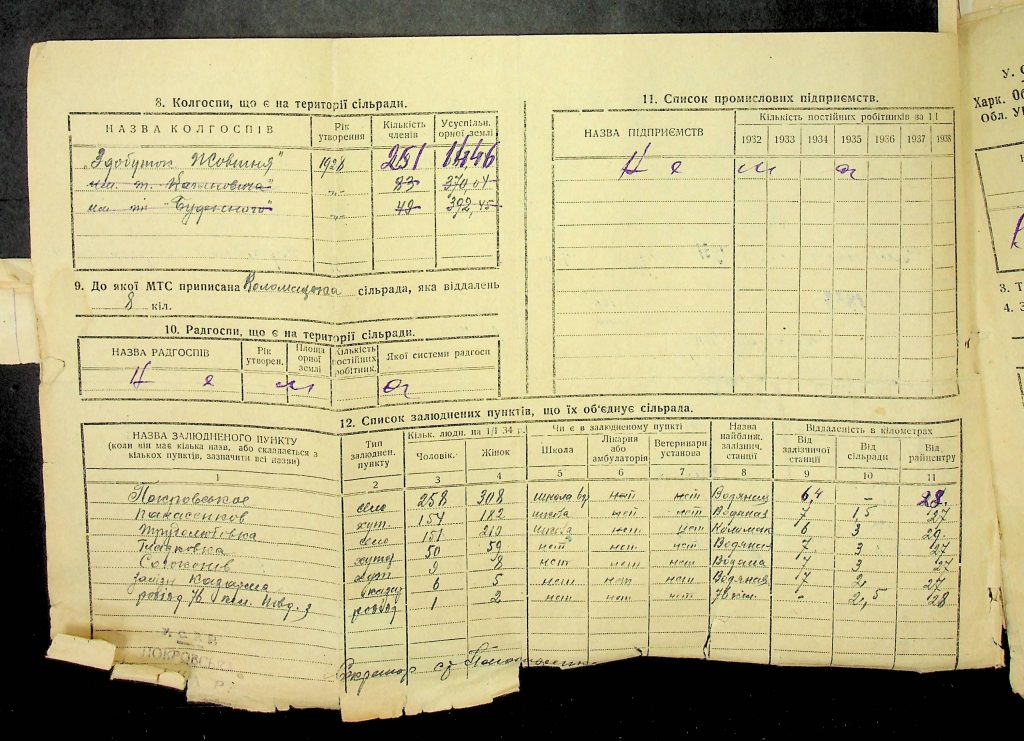 8. Колгоспи, що є на території сільради.
НАЗВА КОЛГОСПІВ Рік утворення Кількість членів Усуспільн. орної землі
„Здобуток Жовтня" 1928 251
им. т. Кагановича" -„- 83 370,04
им. тт "Буденного" -„- 49 392,45
9. До якої МТС приписана сільрада, яка віддалень
8 кіл.
10. Радгоспи, що є на території сільради.
НАЗВА РАДГОСПІВ Рік утворен. Площа орної землі Кількість постійних робітник. Якої системи радгосп
Н е м а
11. Список промислових підприємств.
НАЗВА ПІДПРИЄМСТВ Кількість постійних робітників на 1 I
1932 1933 1934 1935 1936 1937 1938
Н е м а
12. Список залюднених пунктів, що їх об'єднує сільрада.
НАЗВА ЗАЛЮДНЕНОГО ПУНКТУ
(коли він має кілька назв, або складається з
кількох пунктів, зазначити всі назви)
Тип залюднен. пункту
Кільк. людн. на 1/I 34 р.
Чоловік. Жінок
Чи є в залюдненому пункті
Школа Лікарня або амбулаторія Ветеринари установа
Назва найближ. залізнич. станції
Віддаленість в кілометрах
Від залізничої станції Від сільради Від райцентру
1 2 3 4 5 6 7 8 9 10 11
Покровськое село 258 308 школа нет нет 6,4 - 28.
хут. 154 182 школа нет нет Водяная 7 1,5 27
Трудолюбовка село 151 213 школа нет нет Коломак 6 3 29.
хутор 50 59 нет нет нет Водяная 7 3 27
хут. 9 8 нет нет нет Водяна 7 3 27
казарма 6 5 нет нет нет Водяная 7 2, 27
розїзд 76 км. розїзд 1 2 нет нет нет 76 км. - 2,5 28
У.С.Р.Р.
ПОКРОВСЬКА
Секретар с/р
У. С
Харк. Об
Обл. У
3. Т
4. З